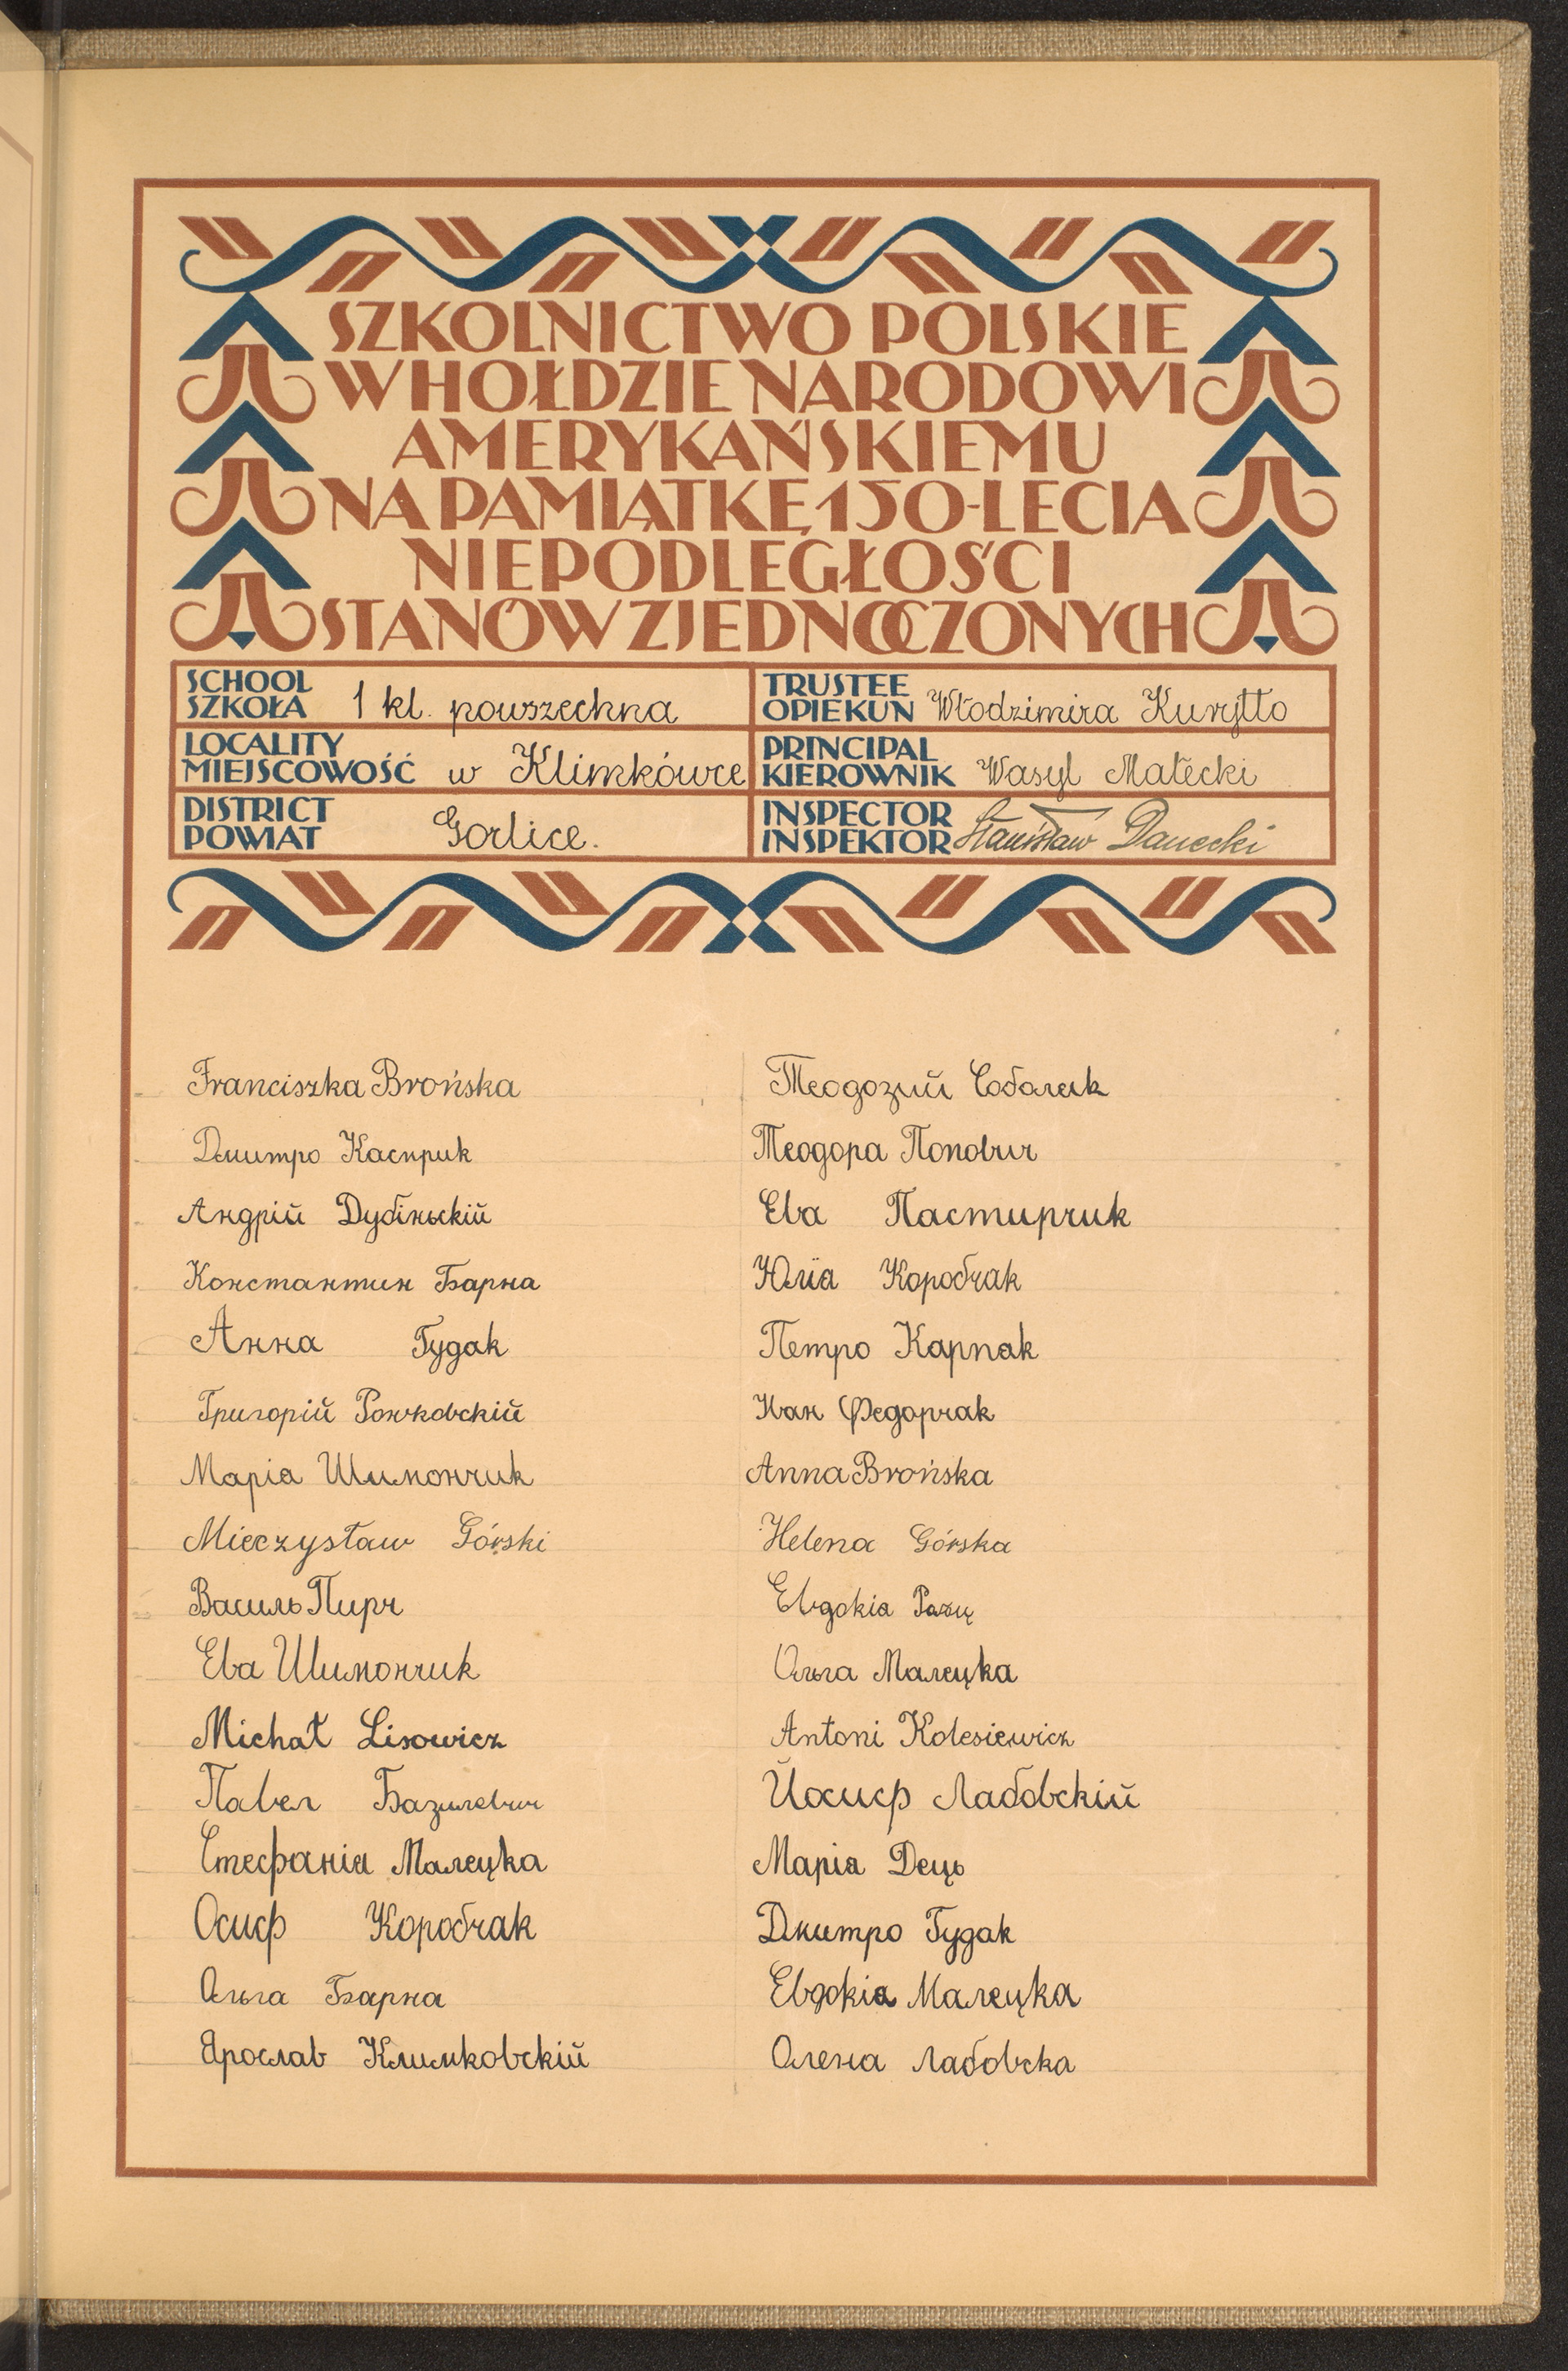 SZKOLNICTWO POLSKIE
W HOŁDZIE NARODOWI
AMERYKAŃSKIEMU
NA PAMIĄTKĘ 150-LECIA
NIEPODLEGŁOŚCI
STANÓW ZJEDNOCZONYCH
SCHOOL
SZKOŁA 1 kl. powszechna
TRUSTEE
OPIEKUN Włodzimira Kuryłło
LOCALITY
MIEJSCOWOŚĆ w Klimkówce
PRINCIPAL
KIEROWNIK Wasyl Małecki
DISTRICT
POWIAT Gorlice.
INSPECTOR
INSPEKTOR Stanisław Danecki
Franciszka Brońska
Дмитро Касприк
Андрій Дубіньскій
Константин Барна
Анна Гудак
Григорій Рожковскій
Маріа Шимончик
Mieczysław Górski
Василь Пирч
Ева Шимончик
Michał Lisowicz
Павел Базилевич
Стефаніа Малецка
Осиф Коробчак
Ольга Барна
Ярослав Климковскій
Теодозий
Теодора Попович
Ева Пастирчик
Юліа Коробчак
Петро Карпак
Иван Федорчак
Anna Brońska
Helena Górska
Евдокіа
Ольга Малецка
Antoni Kolesiewicz
Йосиф Лабовскій
Маріа Дець
Дмитро Гудак
Евдокіа Малецка
Олена Лабовска